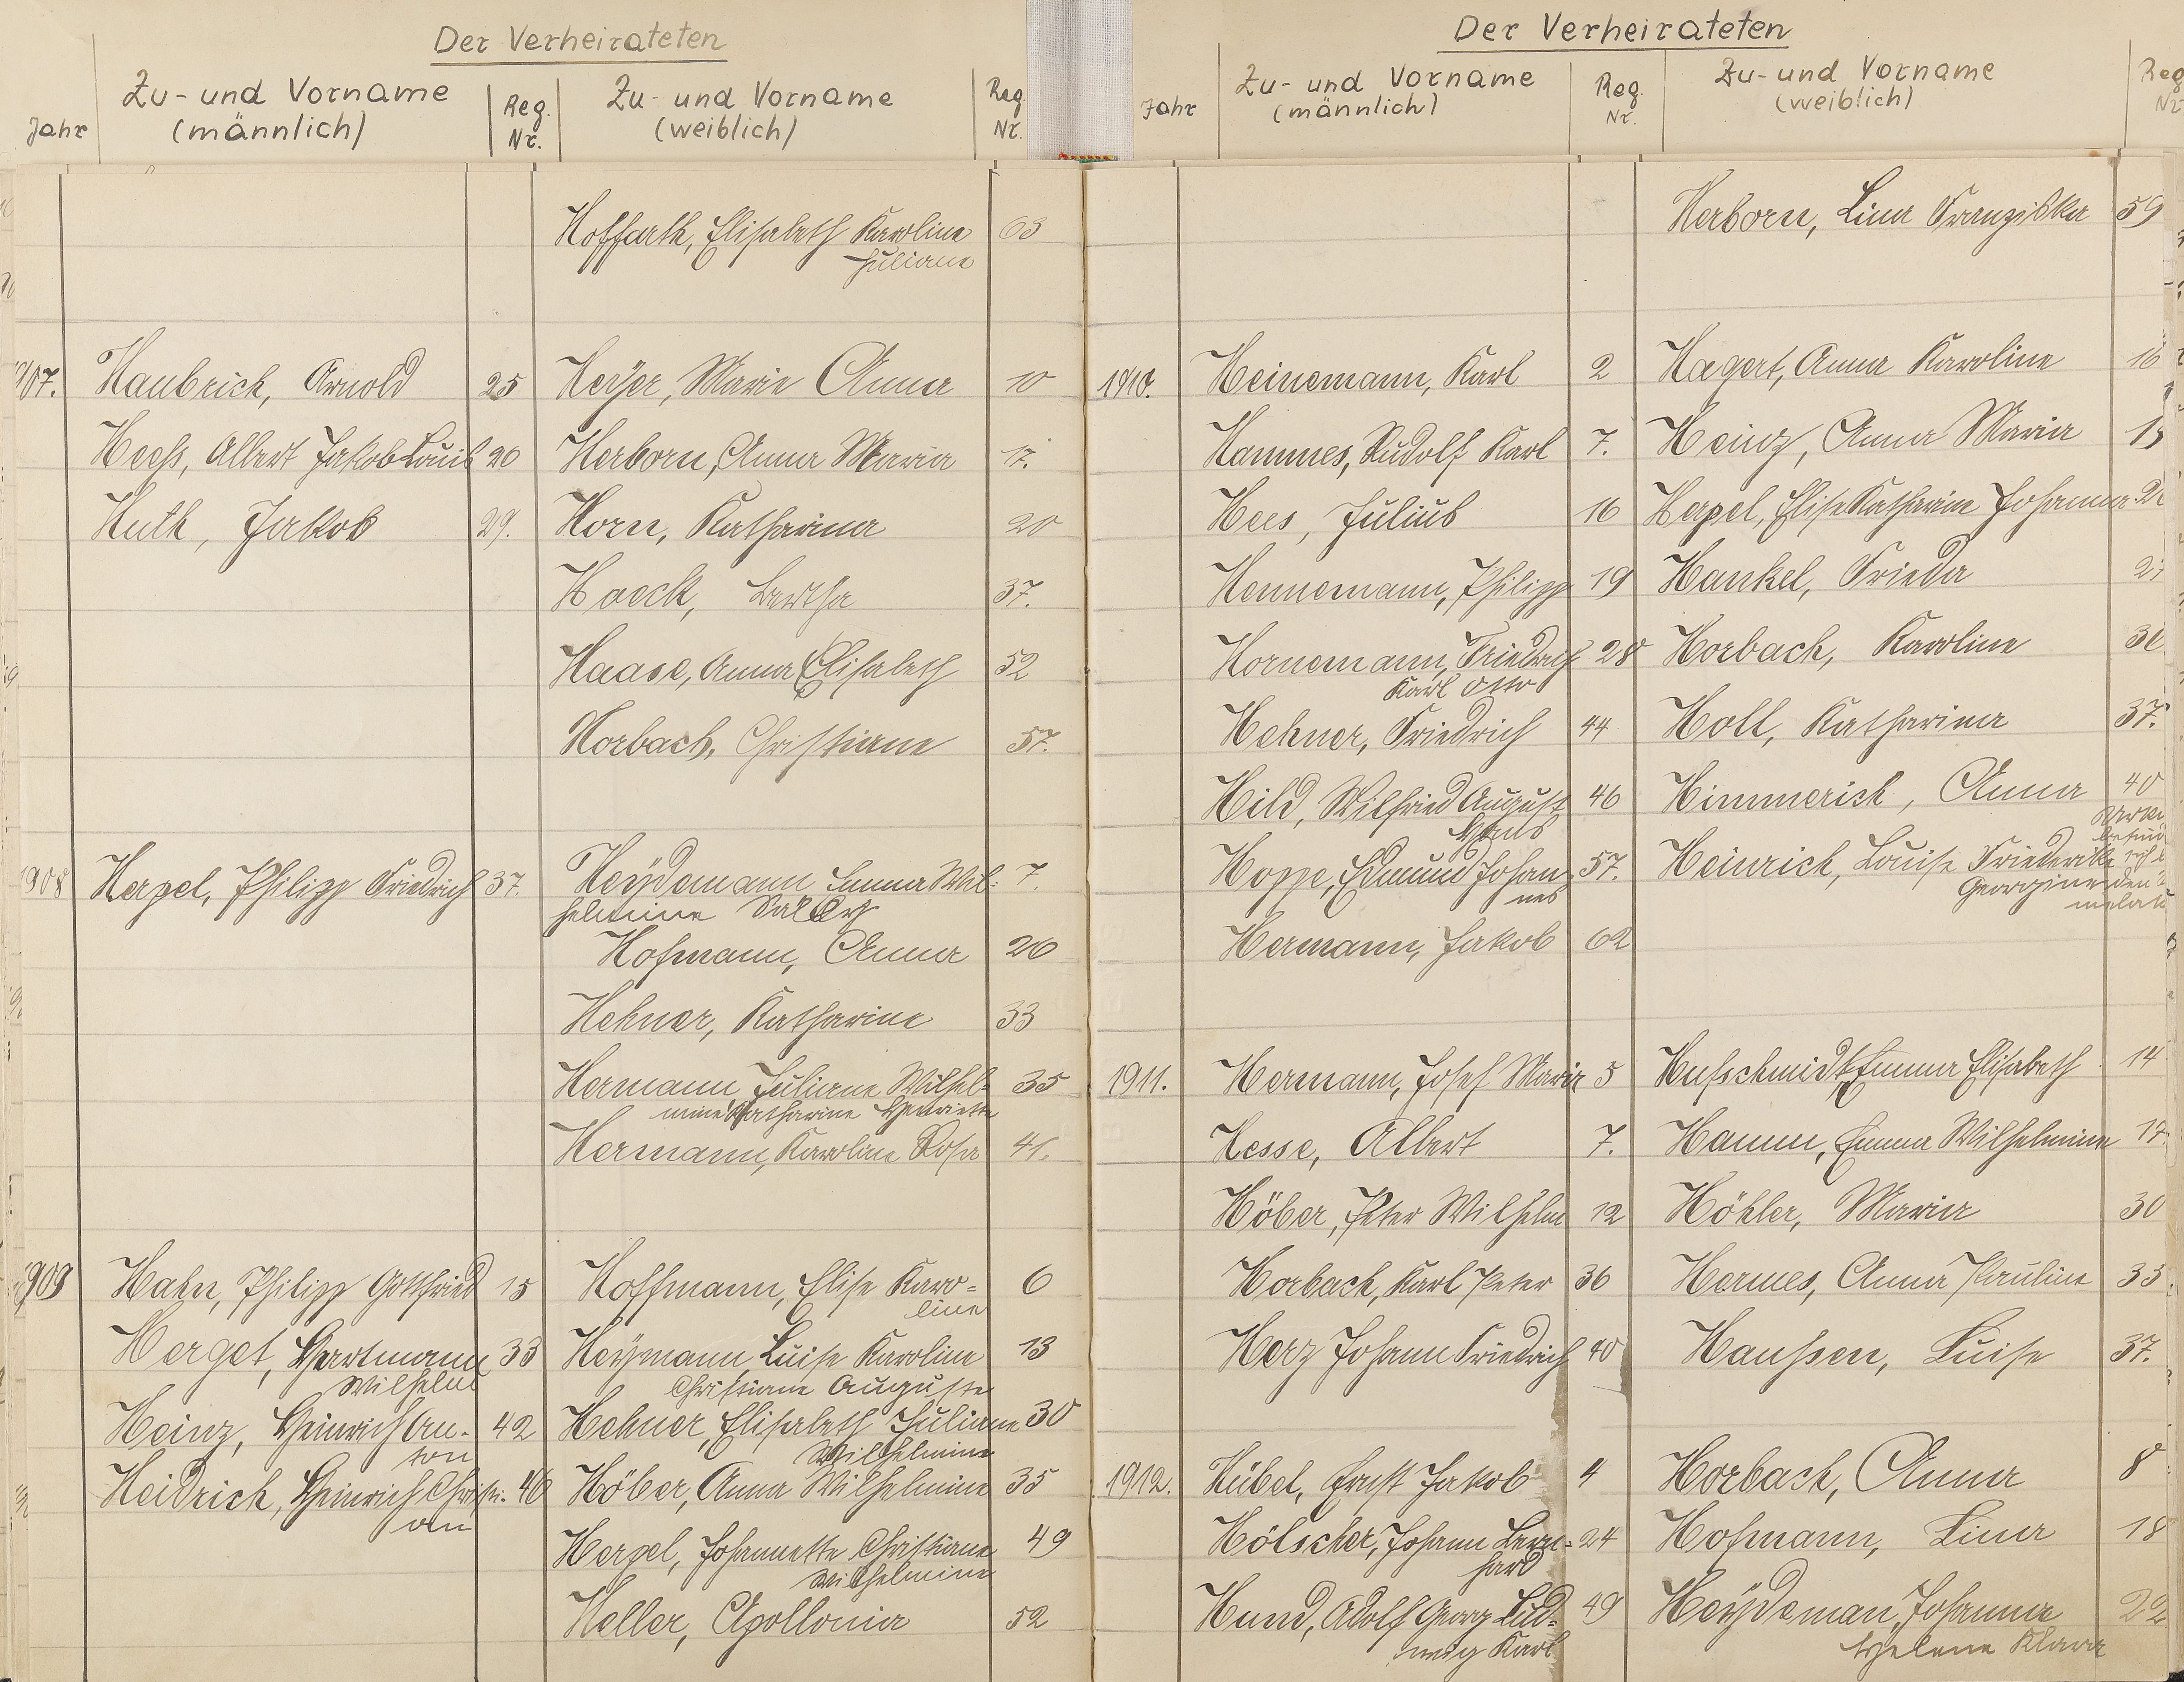 Der Verheirateten
Jahr Zu- und Vorname (männlich) Reg. Nr. Zu- und Vorname (weiblich) Reg. Nr.
Hoffarth, Elisabeth Karoline 63
Juliane
07. Haubrich, Arnold 25 Heyer, Marie Anna 10
Heeß, Albert Jakob Louis 26 Herborn, Anna Maria 17.
Huth, Jakob 29. Horn, Katharina 20
Hoeck, Bertha 37.
Haase, Anna Elisabeth 52
Horbach, Christiane 57.
1908 Herpel, Philipp Friedrich 37. Heÿdemann Emma Wil- 7.
helmine
Hofmann, Anna 26
Hehner, Katharine 33
Hermann Juliane Wilhel- 35
mine Katharine Henriette
Hermann, Karoline Rosa 41.
1909 Hahn, Philipp Gottfried 15 Hoffmann, Elise Karo= 6
line
Herget, Hartmann 33 Heÿmann Luise Karoline 13
Wilhelm Christiane Auguste
Heinz, Heinrich An- 42 Hehner, Elisabeth Juliane 30
ton Wilhelmine
Heidrich, Heinrich Christi- 46 Höber, Anna Wilhelmine 35
an
Herpel, Johannette Christiane 49
Wilhelmine
Heller, Apollonia 52
Der Verheirateten
Jahr Zu- und Vorname (männlich) Reg. Nr. Zu- und Vorname (weiblich) Reg Nr
Herborn, Lina Franziska 59
1910. Heinemann, Karl 2 Hagert, Anna Karoline 16
Hammes, Rudolf Karl 7. Heinz, Anna Maria
Hees, Julius 16 Herpel, Elise Katharine Johanna
Hennemann, Philipp 19 Hankel, Frieda
Hornemann, Friedrich 28 Horbach, Karoline
Karl Otto
Hehner, Friedrich 44 Holl, Katharina 37.
Hild, Wilfried August 46 Himmerich, Anna 40
Hans
Hoppe, Edmund Johan- 57. Heinrich, Louise Friederike
nes Georgine
Hermann, Jakob 62
1911. Hermann, Josef Maria 5 Hufschmidt, Emma Elisabeth 14
Hesse, Albert 7. Hamm, Emma Wilhelmine 17.
Höber, Peter Wilhelm 12 Höhler, Maria 30
Horbach, Karl Peter 36 Hermes, Anna Pauline 33
Herz Johann Friedrich 40 Haußen, Luise 37.
1912. Hübel, Ernst Jakob 4 Horbach, Anna 8
Hölscher, Johann Bern- 24 Hofmann, Lina 18
hard
Hund, Adolf Georg Lud- 49 Heÿdeman, Johanna 22
wig Karl Helene Klara